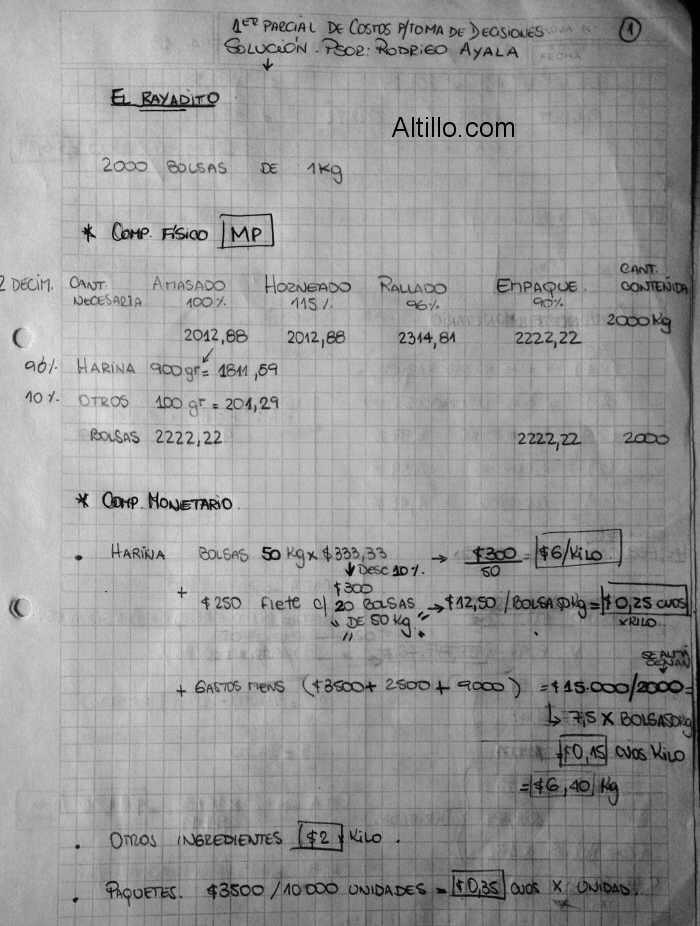 1ER PARCIAL DE COSTOS P/TOMA DE DECISIONES
1
SOLUCIÓN. PSOR: RODRIGO AYALA
EL RAYADITO
Altillo.com
2000 BOLSAS DE 1Kg
* COMP. FÍSICO MP
2 DECIM. CANT. NECESARIA AMASADO 100% HORNEADO 115% RALLADO 96% EMPAQUE 90% CANT. CONTENIDA
2000Kg
2012,88 2012,88 2314,81 2222,22
90% HARINA 900gr = 1811,59
10% OTROS 100gr = 201,29
BOLSAS 2222,22 2222,22 2000
* COMP. MONETARIO
• HARINA BOLSAS 50 Kg x $333,33 → $300/50 = $6/KILO
↓ DESC 10%.
$300
+ $250 FLETE C/ 20 BOLSAS → $12,50/BOLSA 50Kg = $0,25 CVOS
" DE 50 Kg " X KILO
SE ALMACENAN
+ GASTOS MENS ($3500 + 2500 + 9000) = $15.000/2000 =
↳ 7,5 X BOLSA 50Kg
$0,15 CVOS KILO
= $6,40 Kg
• OTROS INGREDIENTES $2 KILO.
• PAQUETES. $3500/10000 UNIDADES = $0,35 CVOS X UNIDAD.